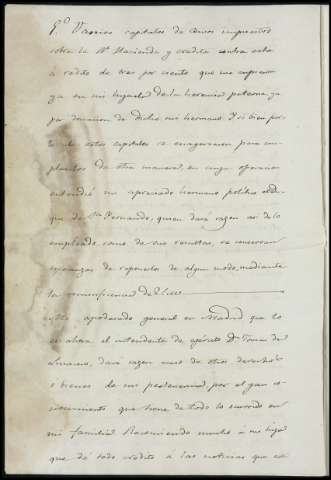 9.º Varios capitales de censos impuestos
sobre la R.l Hacienda y credito contra esta
á redito de tres por ciento que me
ya en mi hijuela de la herencia paterna, ya
por donacion de dicho mi hermano. Y si bien por
estos capitales se enagenaron para em-
plearlos de otra manera, en cuya operacion
entendió mi apreciado hermano politico el Du-
que de S.n Fernando, quien dará razon asi de lo
empleado como de sus resultas, se conservan
esperanzas de reponerlos de algun modo, mediante
la munificencia de S. M.
Mi apoderado general en Madrid que lo
es ahora el intendente de egercito D.n Tomas de
dará razon de otros derechos
ó bienes de mi pertenencia, por el gran co-
nocimiento que tiene de todo lo ocurrido en
mi familia. Recomiendo mucho á mi hija
que dé todo credito á las noticias que